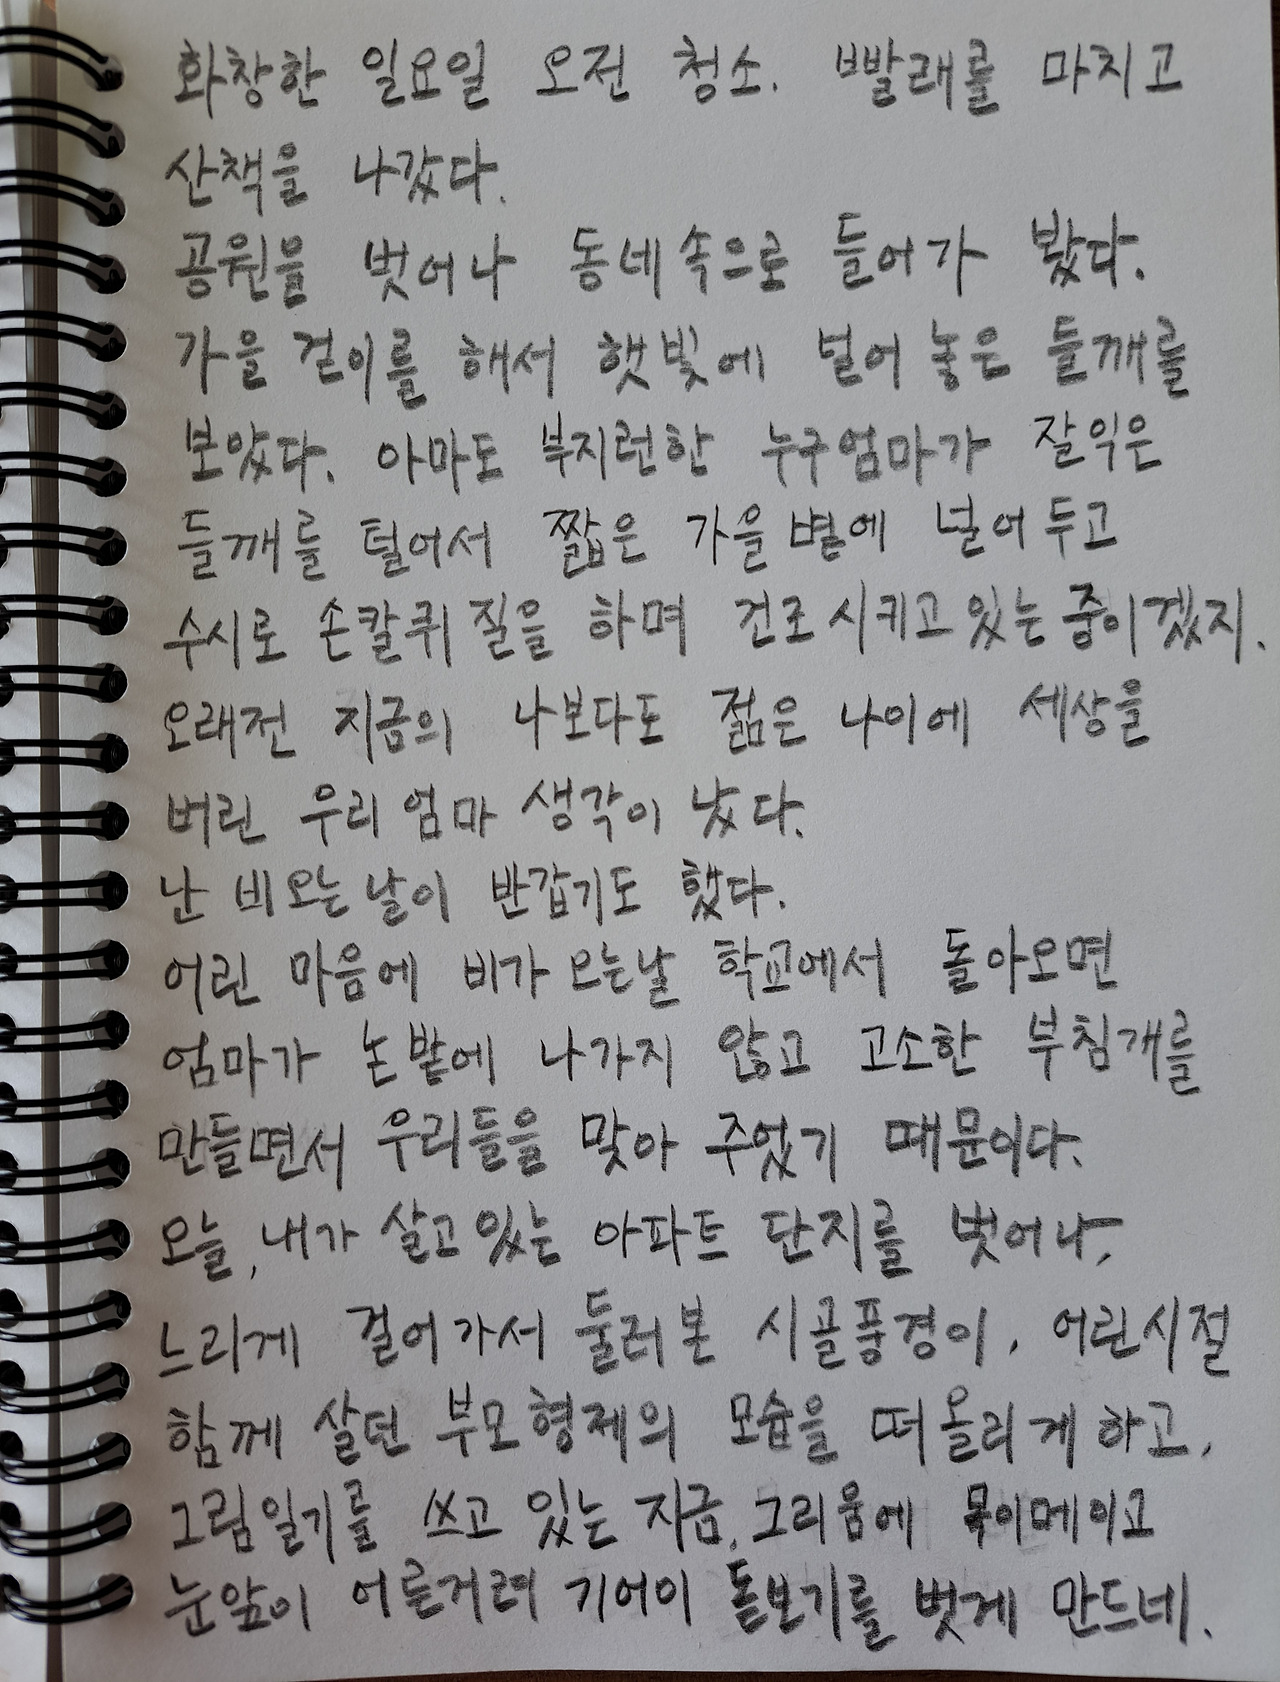 화창한 일요일 오전 청소. 빨래를 마치고
산책을 나갔다.
공원을 벗어나 동네속으로 들어가 봤다.
가을 걷이를 해서 햇빛에 널어 놓은 들깨를
보았다. 아마도 부지런한 누구엄마가 잘익은
들깨를 털어서 짧은 가을볕에 널어두고
수시로 손칼퀴질을 하며 건조시키고있는 중이겠지.
오래전 지금의 나보다도 젊은 나이에 세상을
버린 우리엄마 생각이 났다.
난 비오는날이 반갑기도 했다.
어린 마음에 비가 오는날 학교에서 돌아오면
엄마가 논밭에 나가지 않고 고소한 부침개를
만들면서 우리들을 맞아 주었기 때문이다.
오늘, 내가 살고있는 아파트 단지를 벗어나,
느리게 걸어가서 둘러본 시골풍경이, 어린시절
함께 살던 부모형제의 모습을 떠올리게하고,
그림일기를 쓰고 있는 지금, 그리움에 목이메이고
눈앞이 어른거려 기어이 돋보기를 벗게 만드네.